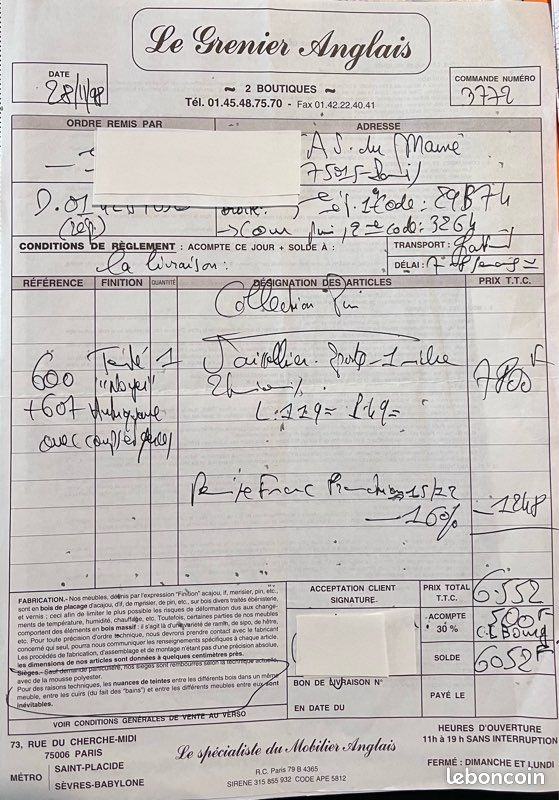 Le Grenier Anglais
DATE
28/11/98
~ 2 BOUTIQUES ~
Tél. 01.45.48.75.70 - Fax 01.42.22.40.41
COMMANDE NUMÉRO
3772
ORDRE REMIS PAR
ADRESSE
du Maine
75015
D. 01
1 code: 29B74
cour 2 code: 3264
CONDITIONS DE RÈGLEMENT : ACOMPTE CE JOUR + SOLDE À :
la livraison:
TRANSPORT :
DÉLAI : 7
RÉFÉRENCE FINITION QUANTITÉ DÉSIGNATION DES ARTICLES PRIX T.T.C.
Collection Pin
600 Teinté 1 1 niche 7800F
"Noyer"
+607 L:119= P:49=
avec
Remise Franc 15/22 -1248
-16%
FABRICATION.- Nos meubles, définis par l'expression "Finition" acajou, if, merisier, pin, etc.,
sont en bois de placage d'acajou, d'if, de merisier, de pin, etc., sur bois divers traités ébénisterie,
et vernis ; ceci afin de limiter le plus possible les risques de déformation dus aux change-
ments de température, humidité, chauffage, etc. Toutefois, certaines parties de nos meubles
comportent des éléments en bois massif : il s'agit là d'une variété de ramin, de sipo, de hêtre,
etc. Pour toute précision d'ordre technique, nous devrons prendre contact avec le fabricant
concerné qui seul, pourra nous communiquer les renseignements spécifiques à chaque article.
Les procédés de fabrication, d'assemblage et de montage n'étant pas d'une précision absolue,
les dimensions de nos articles sont données à quelques centimètres près.
Sièges.- Sauf demande particulière, nos sièges sont rembourrés selon la technique actuelle,
avec de la mousse polyester.
Pour des raisons techniques, les nuances de teintes entre les différents bois dans un même
meuble, entre les cuirs (du fait des "bains") et entre les différents meubles entre eux sont
inévitables.
ACCEPTATION CLIENT
SIGNATURE.
PRIX TOTAL
T.T.C.
6.552
ACOMPTE
30 %
500F
SOLDE
6052F
BON DE LIVRAISON N°
EN DATE DU
PAYÉ LE
VOIR CONDITIONS GÉNÉRALES DE VENTE AU VERSO
73, RUE DU CHERCHE-MIDI
75006 PARIS
MÉTRO
SAINT-PLACIDE
SÈVRES-BABYLONE
Le spécialiste du Mobilier Anglais
R.C. Paris 79 B 4365
SIRENE 315 855 932 CODE APE 5812
HEURES D'OUVERTURE
11h à 19 h SANS INTERRUPTION
FERMÉ : DIMANCHE ET LUNDI
leboncoin